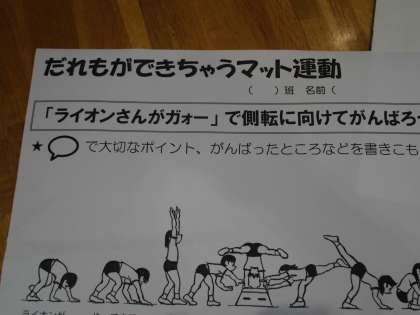 だれもができちゃうマット運動
（　　）班　名前（
「ライオンさんがガォー」で側転に向けてがんばろ
★で大切なポイント、がんばったところなどを書きこも
ライオンが